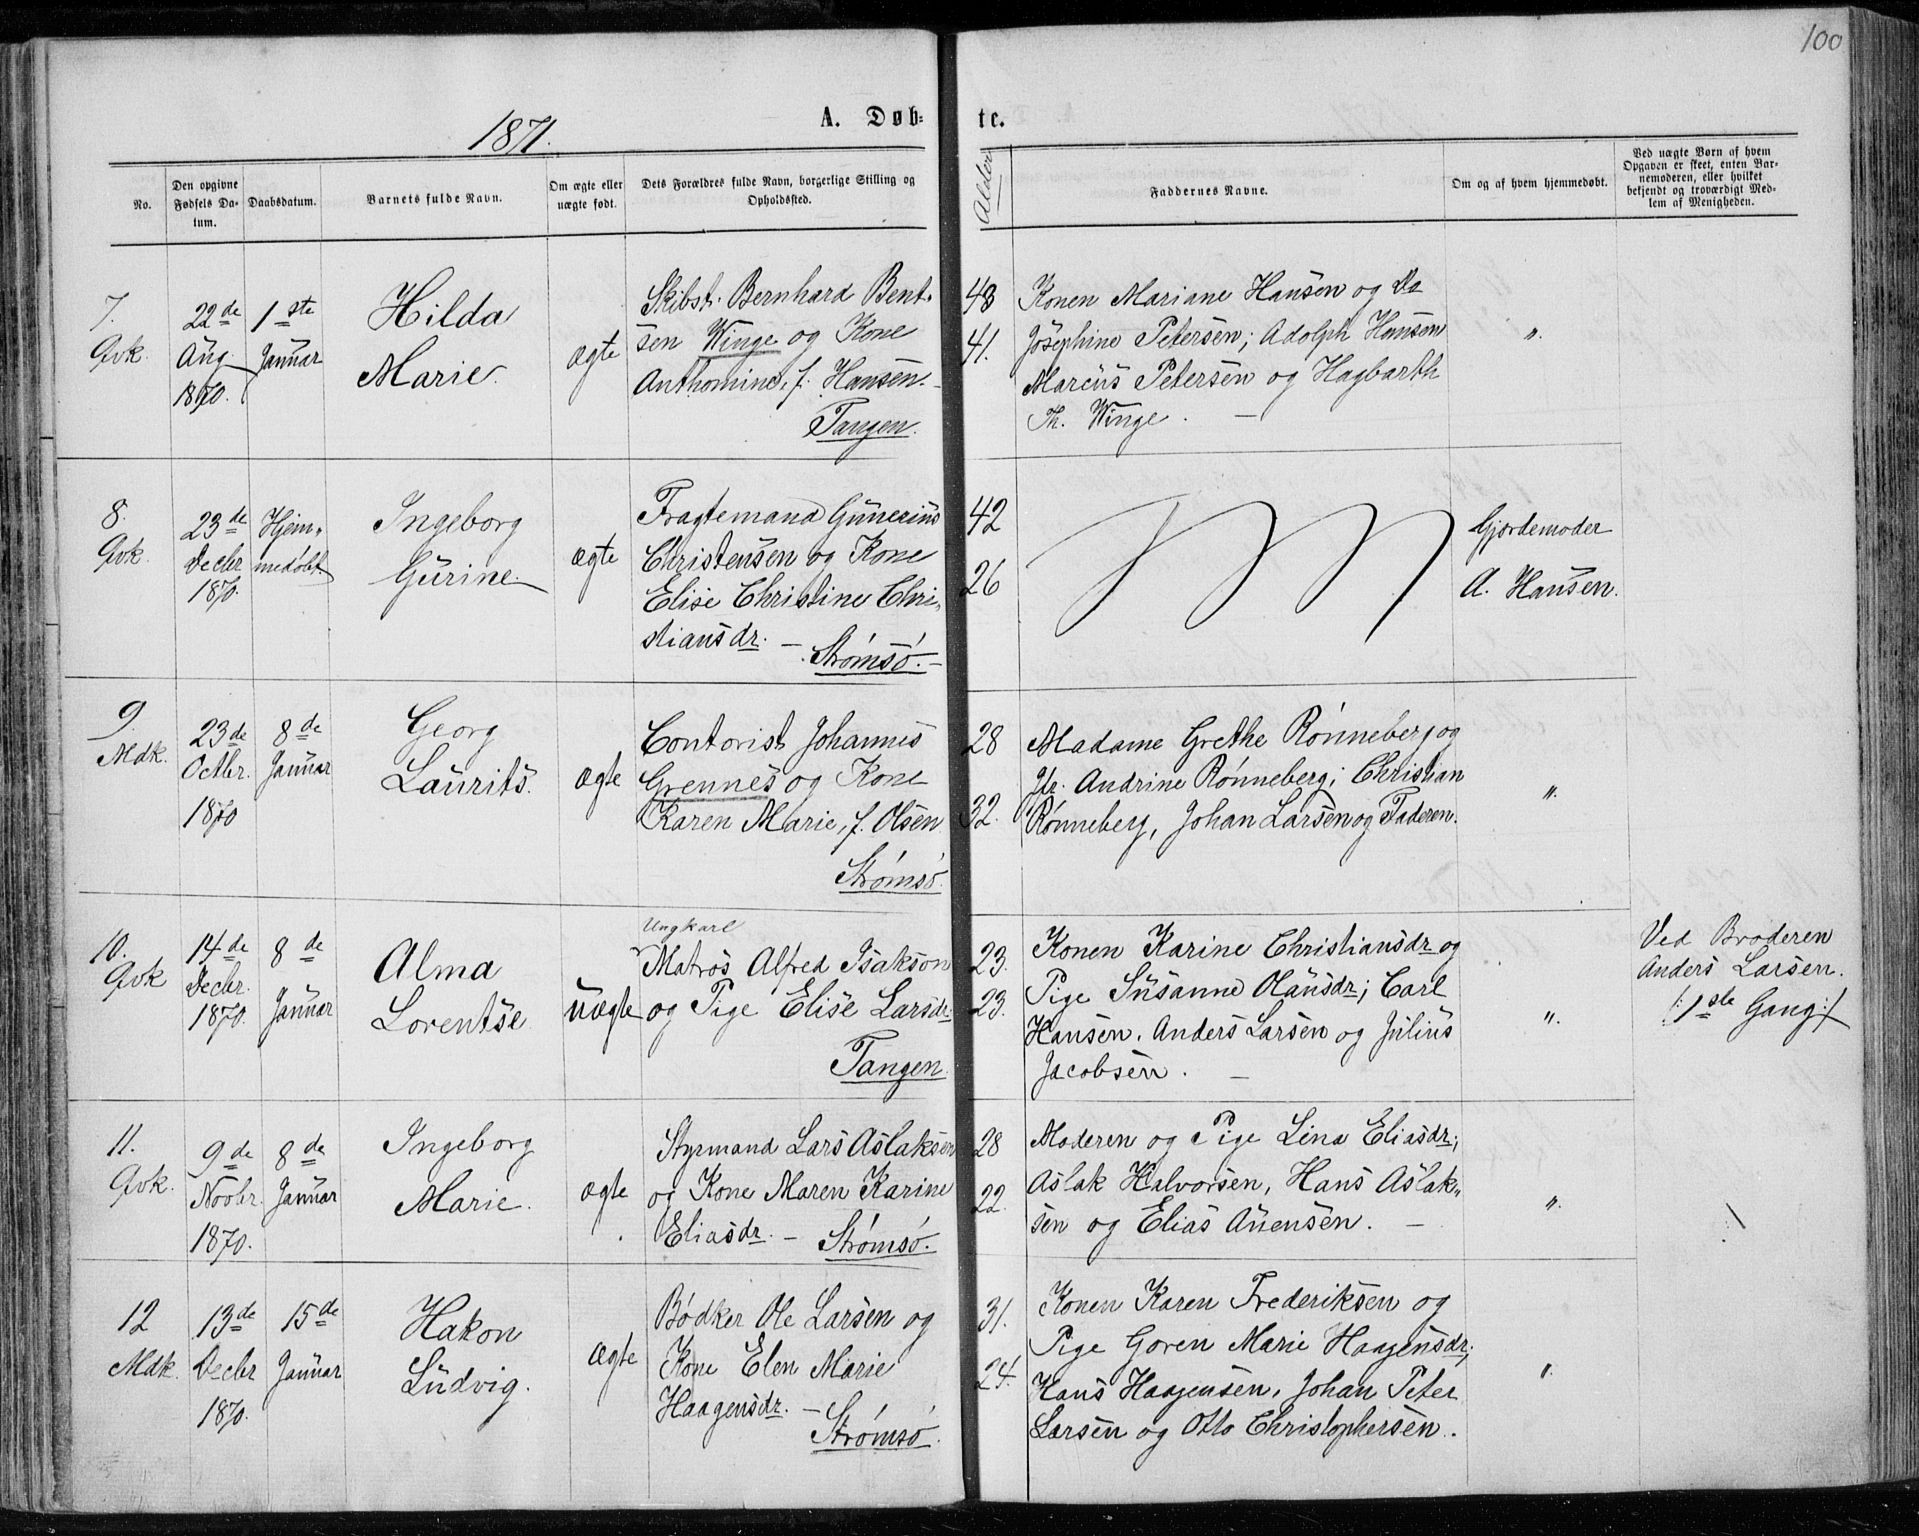 100
1871.
A. Døb-
te.
No.
Den opgivne
Fødsels Da-
tum.
Daabsdatum.
Barnets fulde Navn.
Om ægte eller
uægte født.
Dets Forældres fulde Navn, borgerlige Stilling og
Opholdssted.
Alder
Faddernes Navne.
Om og af hvem hjemmedøbt.
Ved uægte Børn af hvem
Opgaven er skeet, enten Bar-
nemoderen, eller hvilket
bekjendt og troværdigt Med-
lem af Menigheden.
7.
Qvk.
22de
Aug.
1870.
1ste
Januar
Hilda
Marie.
ægte
Skibst. Bernhard Bent-
sen Winge og Kone
Anthomine, f. Hansen.
Tangen.
48
41.
Konen Mariane Hansen og Do
Josephine Petersen; Adolph Hansen
Marcus Petersen og Hagbarth
Th. Winge. —
"
8.
Qvk.
23de
Decbr
1870.
Hjem-
medøbt.
Ingeborg
Gurine.
ægte
Fragtemand Gunerius
Christensen og Kone
Elise Christine Chri-
stiansdr. —
Strømsö. —
42
26
Gjordemoder
A. Hansen.
9.
Mdk.
23de
Octbr.
1870
8de
Januar
Georg
Laurits.
ægte
Contorist Johannes
Grennes og Kone
Karen Marie, f. Olsen
Strömsö.
28
32.
Madame Grethe Rönneberg og
Jfr. Andrine Rönneberg; Christian
Rönneberg, Johan Larsen og Faderen.
"
10.
Qvk
14de
Decbr.
1870.
8de
Januar
Alma
Lorentse
uægte
Ungkarl
Matros Alfred Isakson
og Pige Elise Larsdr.
Tangen.
23.
23.
Konen Karine Christiansdr og
Pige Susanne Olausdr; Carl
Hansen, Anders Larsen og Julius
Jacobsen. —
"
Ved Broderen
Anders Larsen.
/: 1ste Gang :/
11.
Qvk.
9de
Novbr.
1870.
8de
Januar
Ingeborg
Marie.
ægte
Styrmand Lars Aslaksen
og Kone Maren Karine
Eliasdr. — Strømsö.
28
22.
Moderen og Pige Lina Eliasdr;
Aslak Halvorsen, Hans Aslak-
sen og Elias Auensen. —
"
12
Mdk.
13de
Decbr
1870.
15de
Januar
Hakon
Ludvig.
ægte
Bödker Ole Larsen og
Kone Elen Marie
Haagensdr. —
Strömsö.
31.
24.
Konen Karen Frederiksen og
Pige Goren Marie Haagensdr;
Hans Haagensen, Johan Peter
Larsen og Otto Christophersen.
"